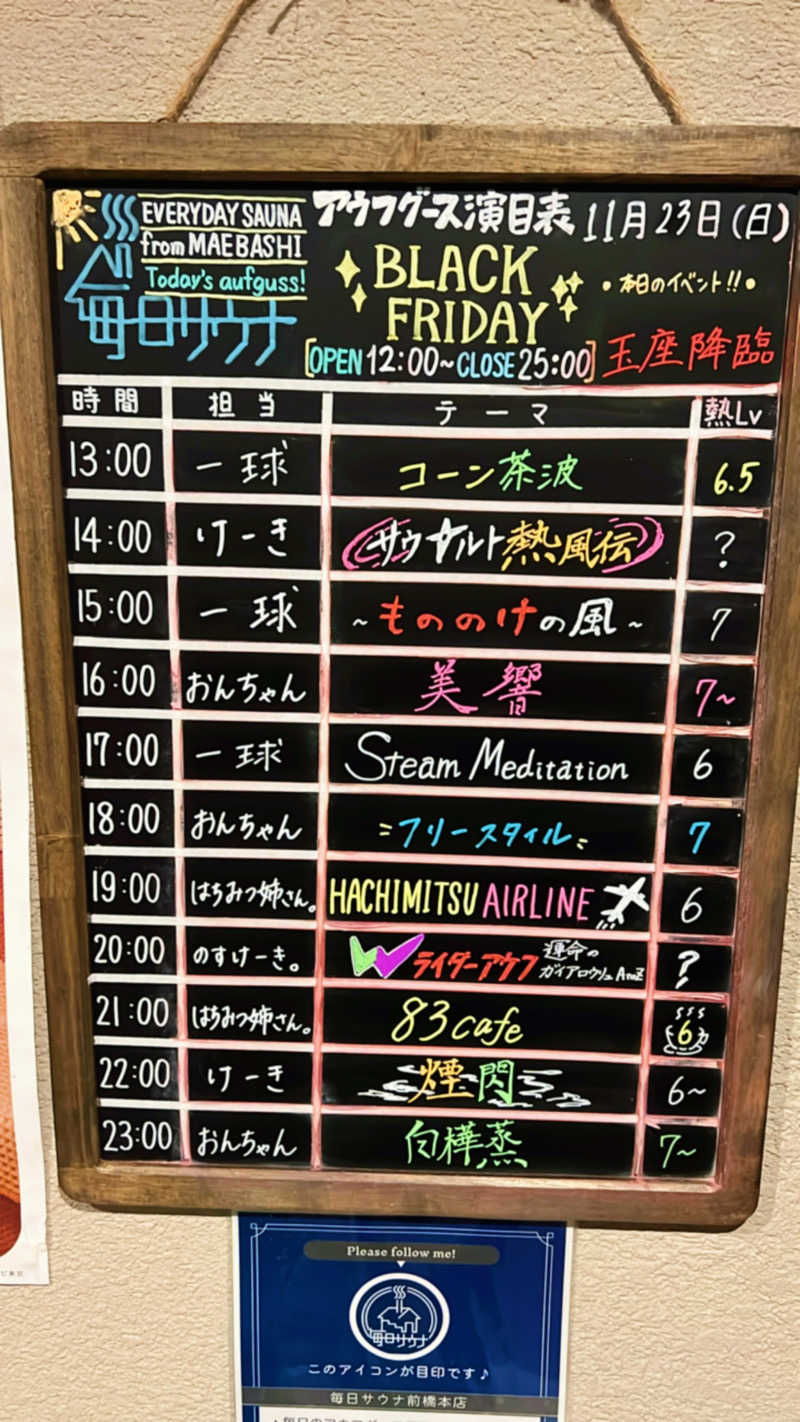 EVERYDAY SAUNA
from MAEBASHI
Today's aufguss!
毎日サウナ
アウフグース演目表 11月23日(日)
BLACK
FRIDAY
[OPEN 12:00~CLOSE 25:00]
•本日のイベント!!•
玉座降臨
時間 担当 テーマ 熱Lv
13:00 一球 コーン茶波 6.5
14:00 けーき サウナルト熱風伝 ?
15:00 一球 ~もののけの風~ 7
16:00 おんちゃん 美響 7~
17:00 一球 Steam Meditation 6
18:00 おんちゃん フリースタイル 7
19:00 はちみつ姉さん。 HACHIMITSU AIRLINE 6
20:00 のすけーき。 W ライダーアウフ 運命の ガイアロウリュ AtoZ ?
21:00 はちみつ姉さん。 83cafe 6
22:00 けーき 煙閃 6~
23:00 おんちゃん 白樺蒸 7~
Please follow me!
毎日サウナ
このアイコンが目印です♪
毎日サウナ前橋本店